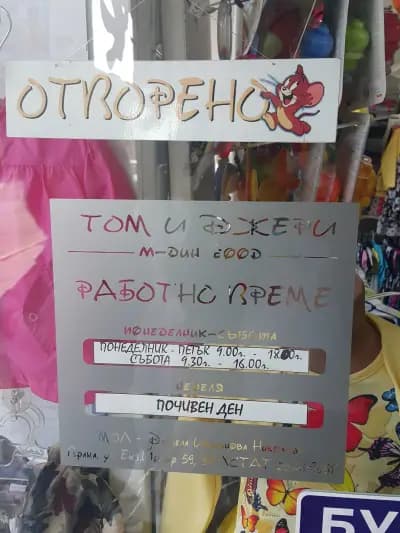 ОТВОРЕНО
ТОМ И ДЖЕРИ
М-ДИН ЕООД
РАБОТНО ВРЕМЕ
ПОНЕДЕЛНИК-СЪБОТА
ПОНЕДЕЛНИК - ПЕТЪК 9.00г. - 18.00г.
СЪБОТА 9.30г. - 16.00г.
НЕДЕЛЯ
ПОЧИВЕН ДЕН
МОЛ -
59,
БУ